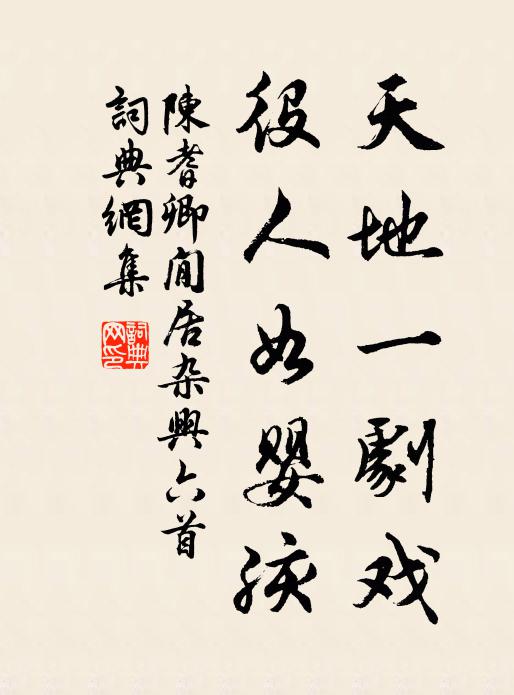 天地一劇戏
役人如婴孩
陳耆卿閒居杂興六首
詞典網集
詞典网印